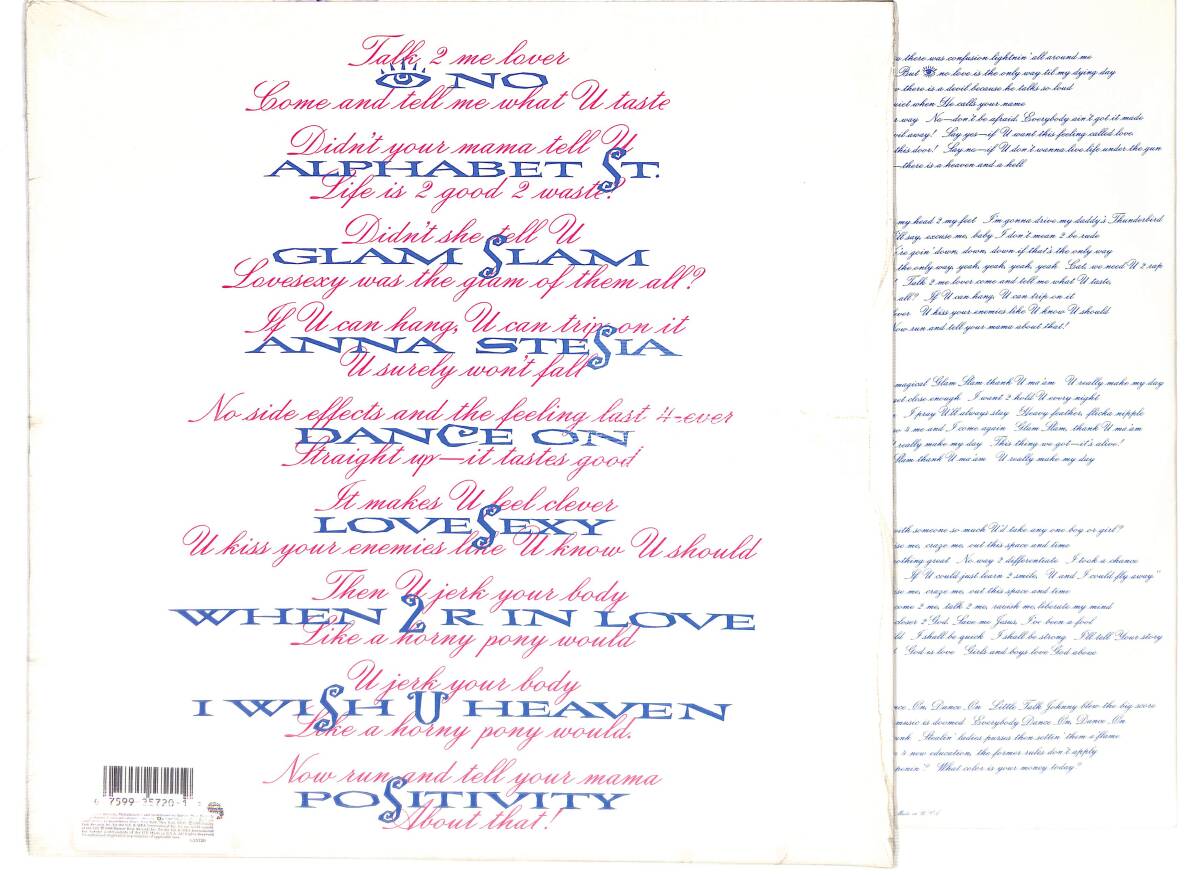 Talk 2 me lover
NO
Come and tell me what U taste
Didn't your mama tell U
ALPHABET ST.
Life is 2 good 2 waste?
Didn't she tell U
GLAM SLAM
Lovesexy was the glam of them all?
If U can hang, U can trip on it
ANNA STESIA
U surely won't fall
No side effects and the feeling last 4-ever
DANCE ON
Straight up—it tastes good
It makes U feel clever
LOVESEXY
U kiss your enemies like U know U should
Then U jerk your body
WHEN 2 R IN LOVE
Like a horny pony would
U jerk your body
I WISH U HEAVEN
Like a horny pony would.
Now run and tell your mama
POSITIVITY
About that!
7599 35720-1
there was confusion lightnin' all around me
But no love is the only way til my dying day
there is a devil because he talks so loud
when He calls your name
way No—don't be afraid. Everybody ain't got it made
away! Say yes—if U want this feeling called love.
this door! Say no—if U don't wanna live life under the gun
—there is a heaven and a hell
my head 2 my feet I'm gonna drive my daddy's Thunderbird
say, excuse me, baby I don't mean 2 be rude
goin' down, down, down if that's the only way
the only way, yeah, yeah, yeah, yeah Cat, we need U 2 rap
Talk 2 me lover come and tell me what U taste,
all? If U can hang, U can trip on it
U kiss your enemies like U know U should
Now run and tell your mama about that!
magical Glam Slam thank U ma'am U really make my day
close enough I want 2 hold U every night
I pray U'll always stay Heavy feather, flicka nipple
4 me and I come again Glam Slam, thank U ma'am
really make my day This thing we got—it's alive!
Slam thank U ma'am U really make my day
with someone so much U'd take any one boy or girl?
me, craze me, out this space and time
nothing great No way 2 differentiate I took a chance
If U could just learn 2 smile, U and I could fly away"
me, craze me, out this space and time
come 2 me, talk 2 me, ravish me, liberate my mind
closer 2 God. Save me Jesus, I've been a fool
I shall be quick I shall be strong I'll tell Your story
God is love Girls and boys love God above
On, Dance On Little Talk Johnny blew the big score
music is doomed Everybody Dance On, Dance On
Stealin' ladies purses then settin' them a'flame
4 new education, the former rules don't apply
What color is your money today?
Made in U.S.A.